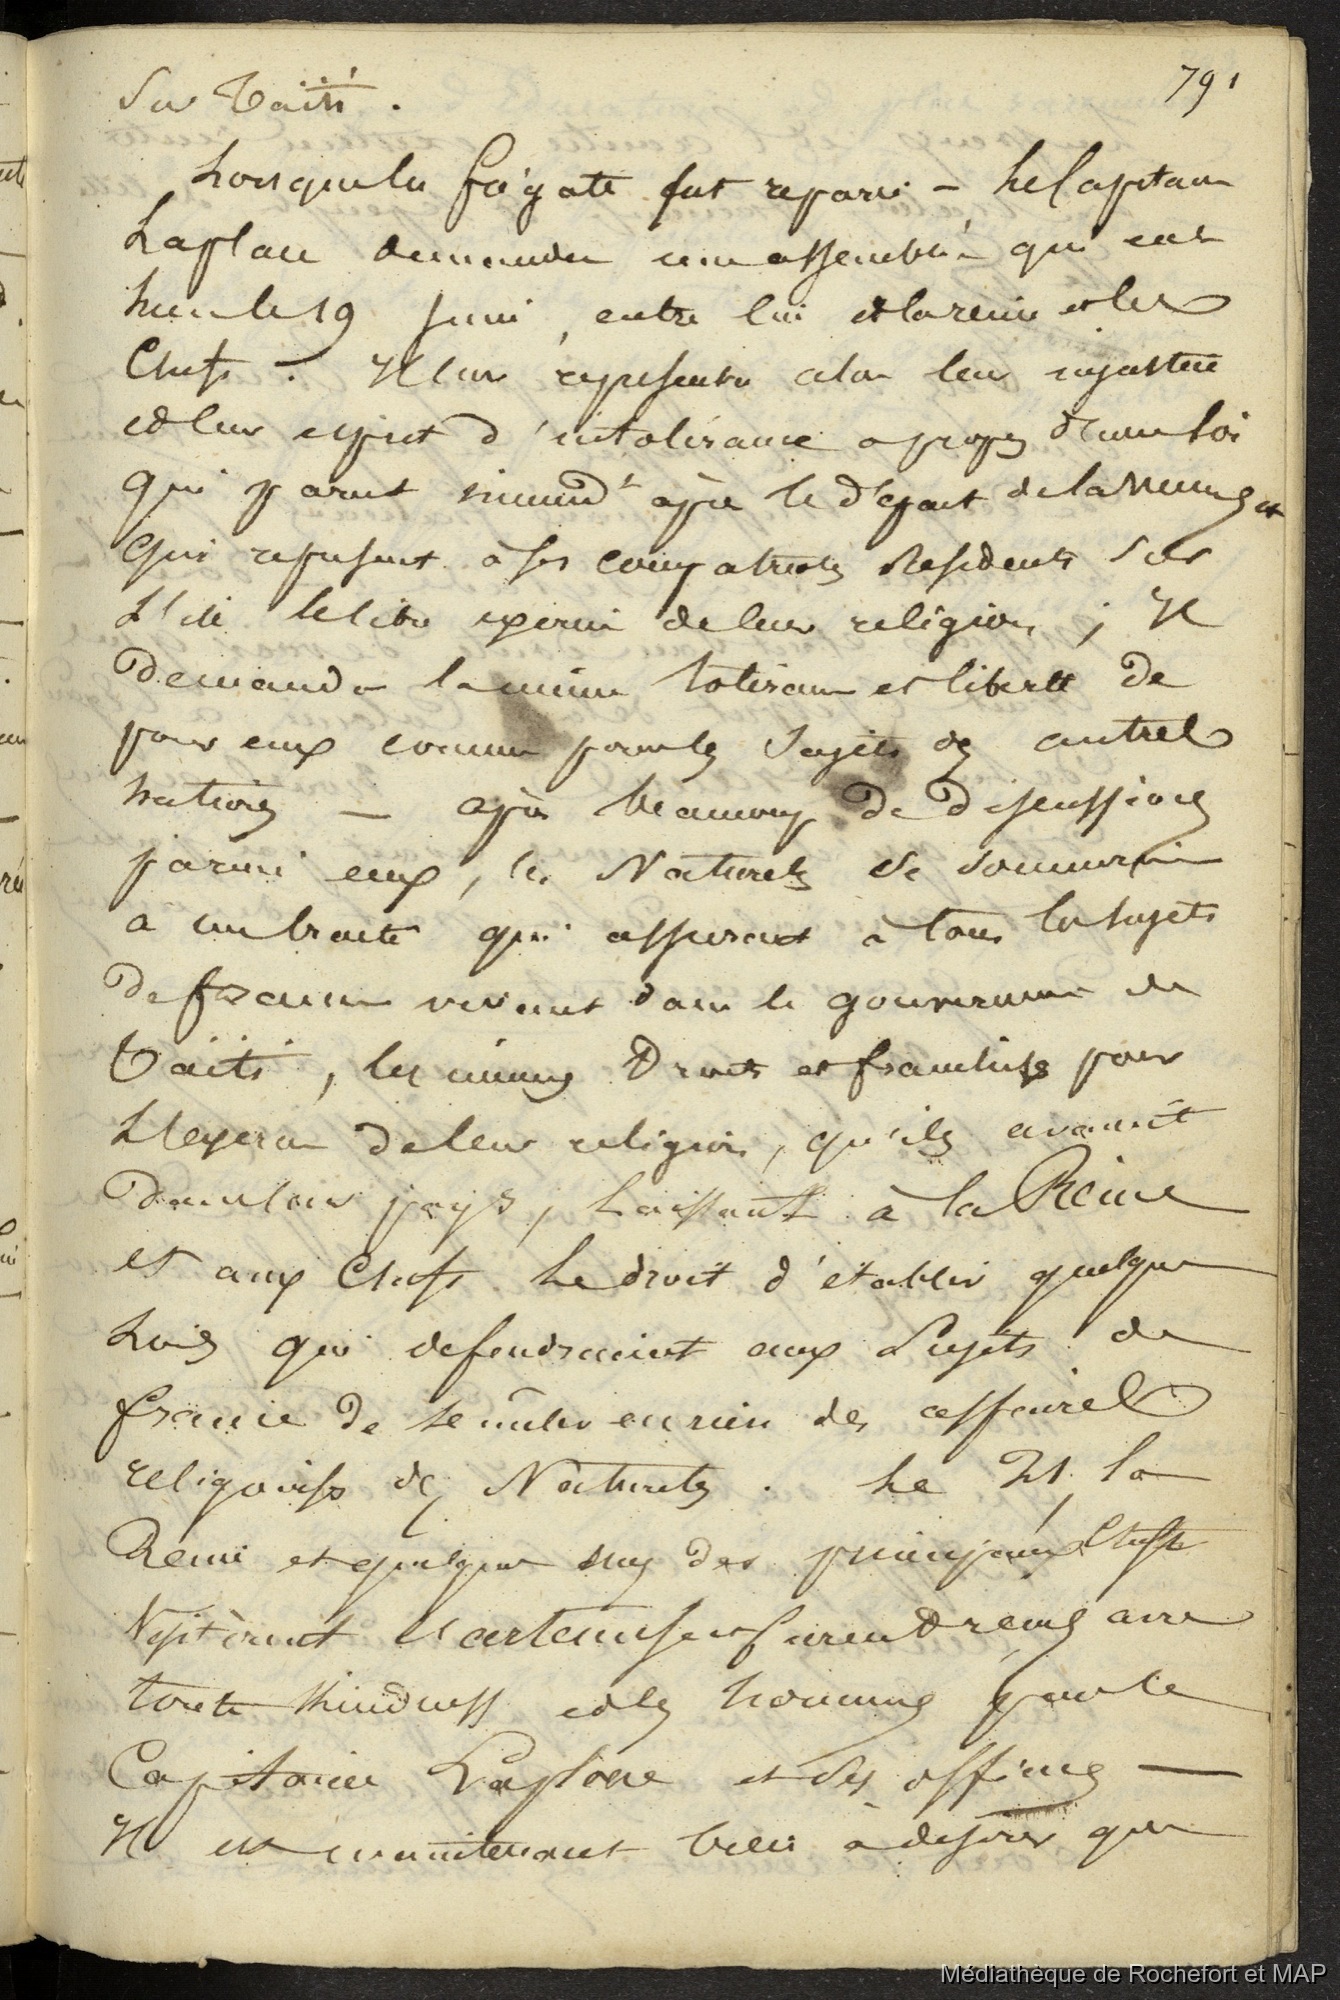 791
Sur Taïti.
Lorsque la frégate fut reparée – Le Capitaine
Laplace demanda une assemblée qui eut
lieu le 19 juin, entre lui et la reine et les
Chefs. Il leur représenta alors leur injustice
et leur esprit d'intolérance a propos d'une loi
qui parut immedt après le départ de la Venus et
qui refusent à ses compatriotes Residents sur
L'ile le libre exercice de leur religion ; Il
Demanda la même tolérance et liberté de
pour eux comme pour les Sujets des autres
nations – après beaucoup De Discussions
parmi eux, les Naturels se soumirent
à un traité qui assurait à tous les sujets
De france vivant dans le gouvernement de
Taïti, les mêmes Droits et franchises pour
L'exercice de leur religion, qu'ils avaient
Dans leur pays, Laissant à la Reine
et aux Chefs Le droit d'établir quelques
Lois qui defendraient aux Sujets de
france de se mêler en rien des affaires
religieuses des Naturels. Le 21, la
Reine et quelques uns des principaux Chefs
Visitèrent l'artemise et furent reçus avec
toute Kindness et les honneurs par le
Capitaine Laplace et ses officiers —
Il est maintenant bien à désirer que
Médiathèque de Rochefort et MAP